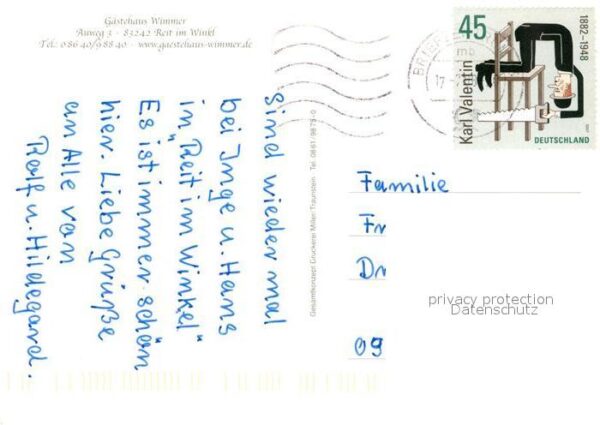 Gästehaus Wimmer
Auweg 3 - 83242 Reit im Winkl
Tel.: 08640/98840 - www.gaestehaus-wimmer.de
Sind wieder mal
bei Inge u. Hans
in "Reit im Winkel"
Es ist immer schön
hier. Liebe Grüße
an Alle von
Rolf u. Hildegard.
Gesamtkonzept Druckerei Miller/Traunstein Tel. 0861/9875-0
BRIEFZ
mb
17
45
1882-1948
Karl Valentin
DEUTSCHLAND
Familie
Fr
Dr
09
privacy protection
Datenschutz